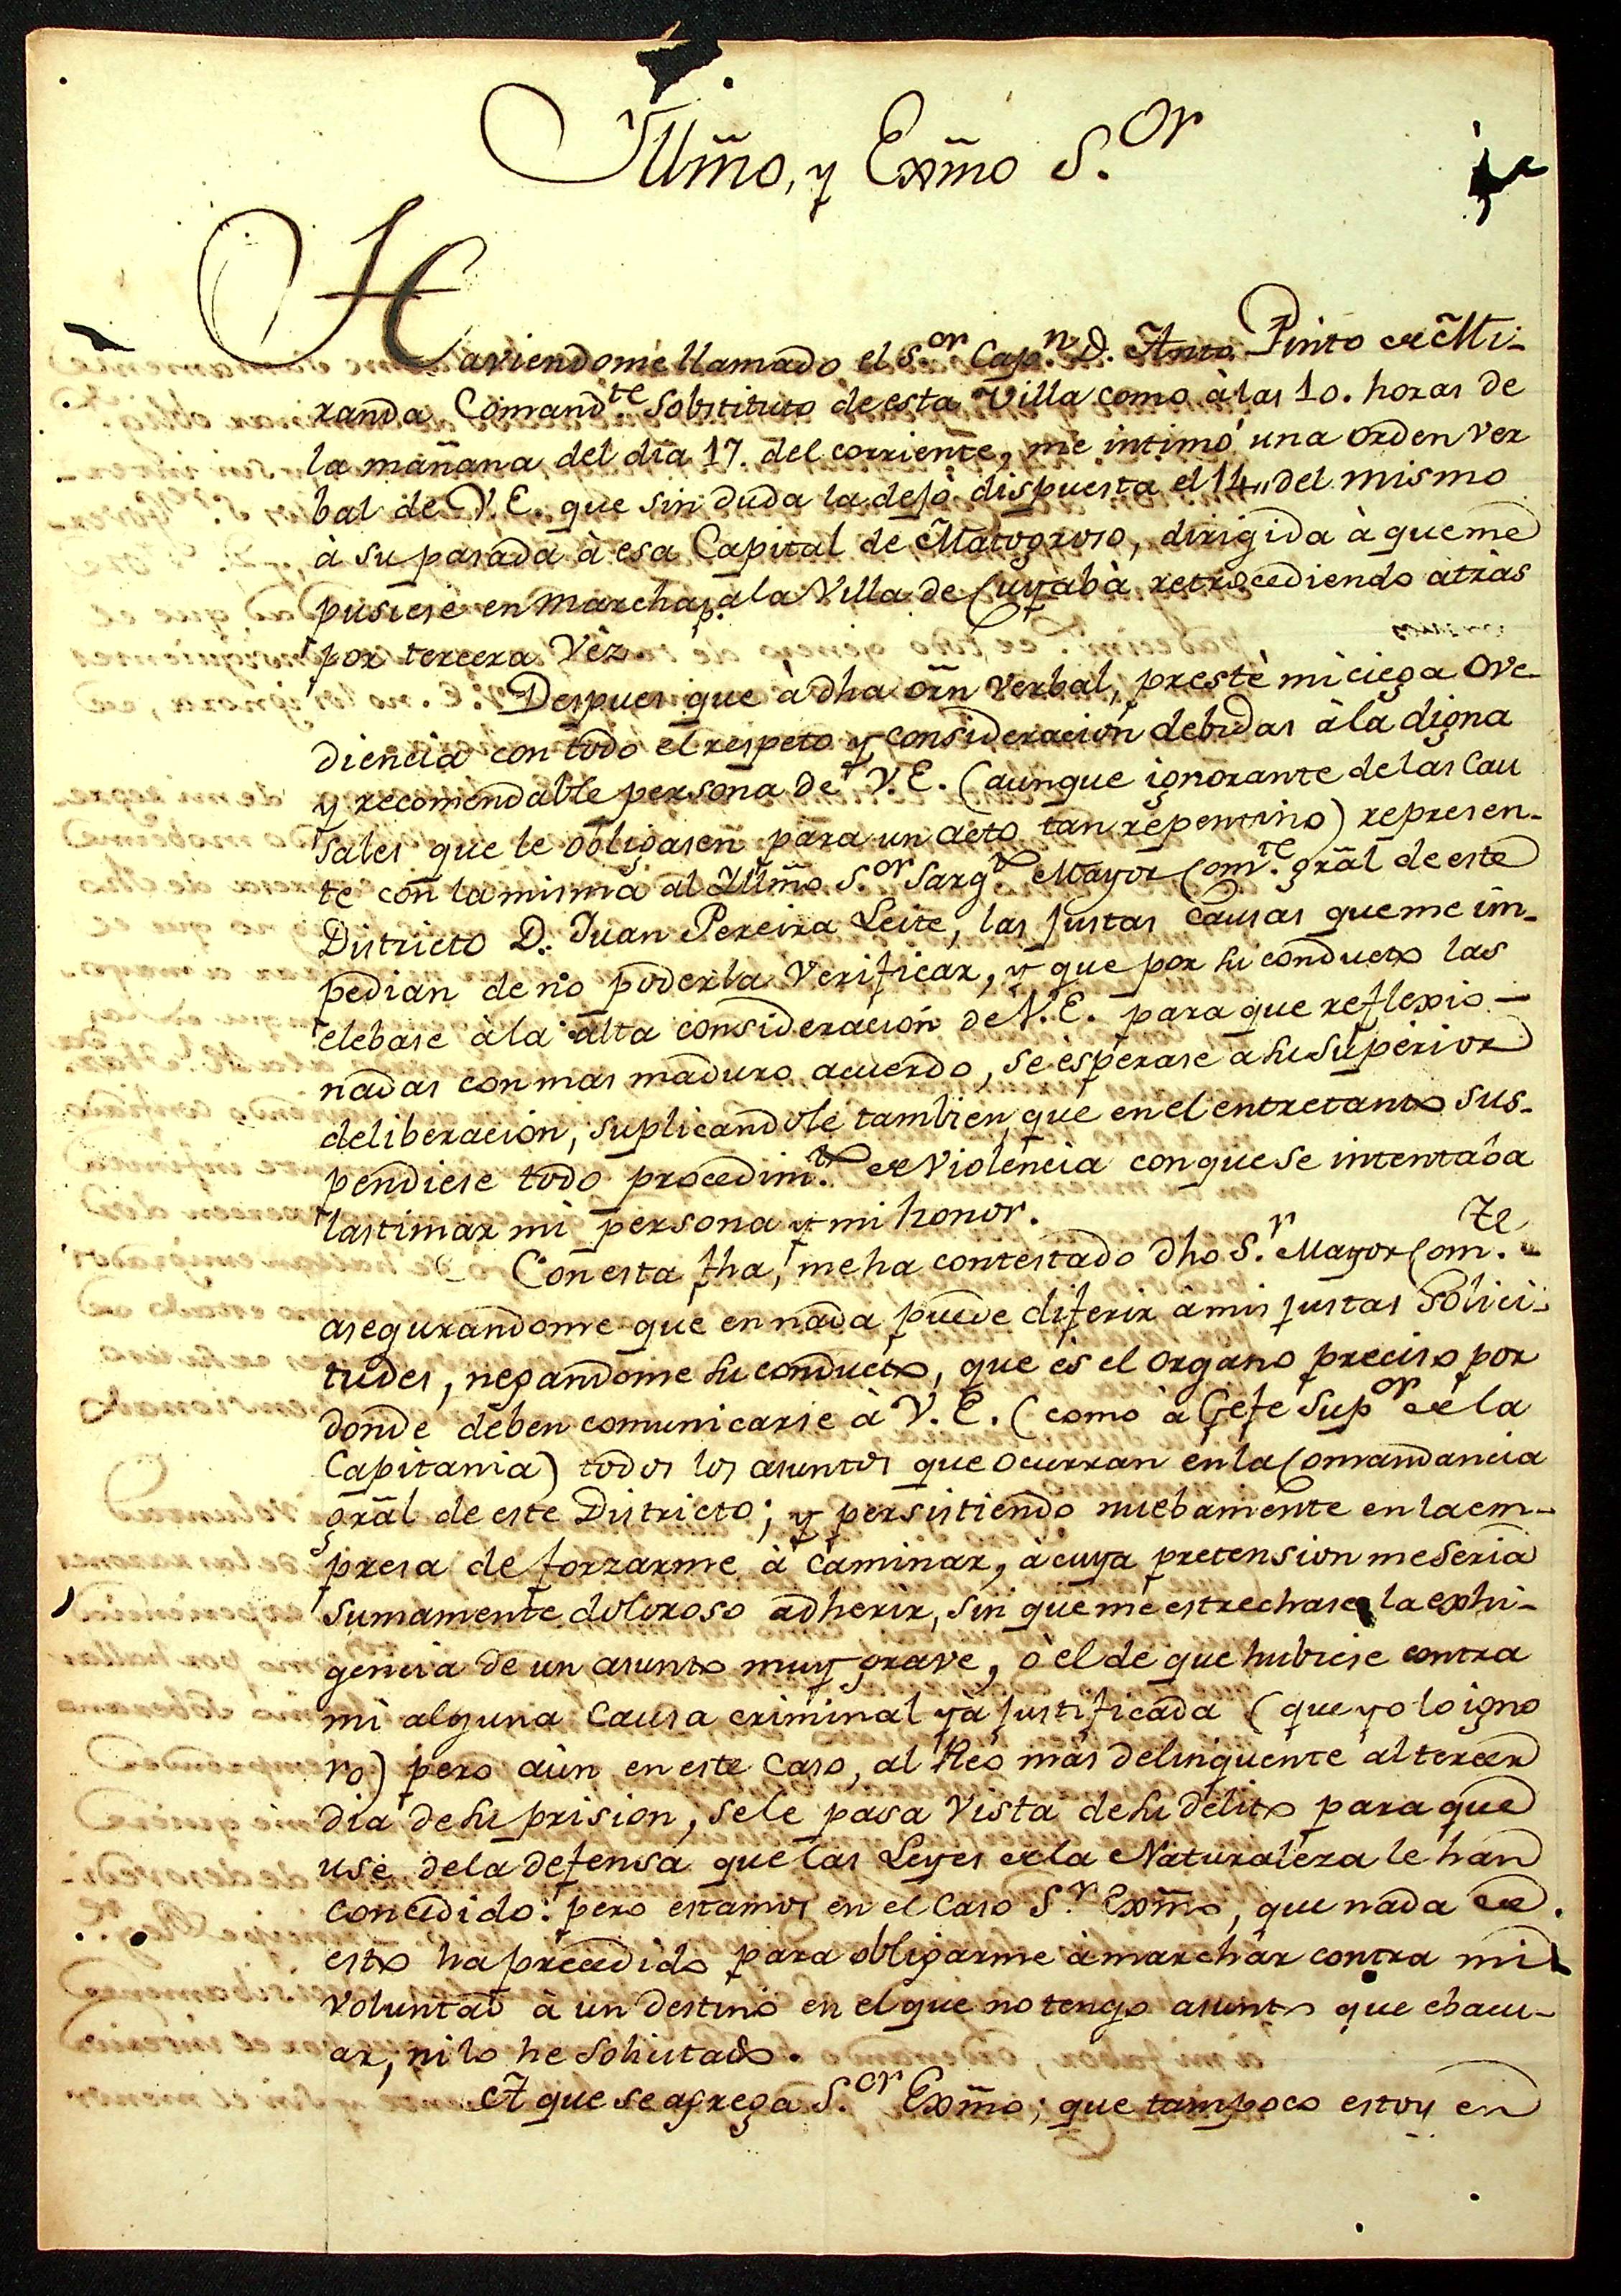 Illm̃o, y Exm̃o S.or
Haviendome llamado el S.or Cap.n D. Anto Pinto de Mi-
randa Comand.te Sobstituto de esta Villa como à las 10. horas de
la mañana del dia 17. del corriente, me intimò una orden ver
bal de V. E. que sin duda la dejò dispuesta el 14,, del mismo
à su pasada à esa Capital de Matogroso, dirigida à que me
pusiese en marcha p.a la Villa de Cuyabà retrocediendo atràs
por tercera Vèz.
Despues que à dha orñ verbal, prestè mi ciega ove-
diencia con todo el respeto y consideracion debidas à la digna
y recomendable persona de V. E. (aunque ignorante de las Cau
sales que le obligasen para un acto tan repentino) represen-
tè con la misma al Illm̃o S.or Sarg.to Mayor Com.te grãl de este
Districto D. Juan Pereira Leite, las justas causas que me im-
pedian de no poderla Verificar, y que por su conducto las
elebase à la alta consideracion de V. E. para que reflexio-
nadas con mas maduro acuerdo, se esperase à su Superior
deliberacion, suplicandole tambien, que en el entretanto sus-
pendiese todo procedim.to de Violencia con que se intentaba
lastimar mi persona y mi honor.
Con esta fha, me ha contestado dho S.r Mayor Com.te
asegurandome que en nada puede diferir à mis justas Solici-
tudes, negandome su conducto, que es el organo preciso por
donde deben comunicarse à V. E. (como à Gefe Sup.or de la
Capitania) todos los asuntos que ocurran en la Comandancia
grãl de este Districto; y persistiendo nuebamente en la em-
presa de forzarme à Caminar, à cuya pretension me seria
sumamente doloroso adherir, sin que me estrechase la exhi-
gencia de un asunto muy grave, ò el de que hubiese contra
mi alguna Causa criminal yà justificada (que yo lo igno
ro) pero aùn en este Caso, al Reo mas delinquente al tercer
dia de su prision, se le pasa Vista de su delito para que
use de la defensa que las Leyes de la Naturaleza le han
concedido: pero estamos en el Caso S.r Exm̃o, que nada de
esto ha precedido para obligarme à marchar contra mi
voluntad à un destino en el que no tengo asunto que ebacu-
ar, ni lo he solicitado.
A que se agrega S.or Exm̃o; que tampoco estoy en